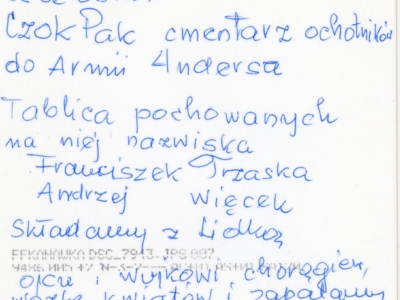 Czok Pak cmentarz ochotników
do Armii Andersa
Tablica pochowanych
na niej nazwiska
Franciszek Trzaska
Andrzej Więcek
Składamy z Lidką
ojcu i wujkowi chorągiew,
kwiatów i zapalamy